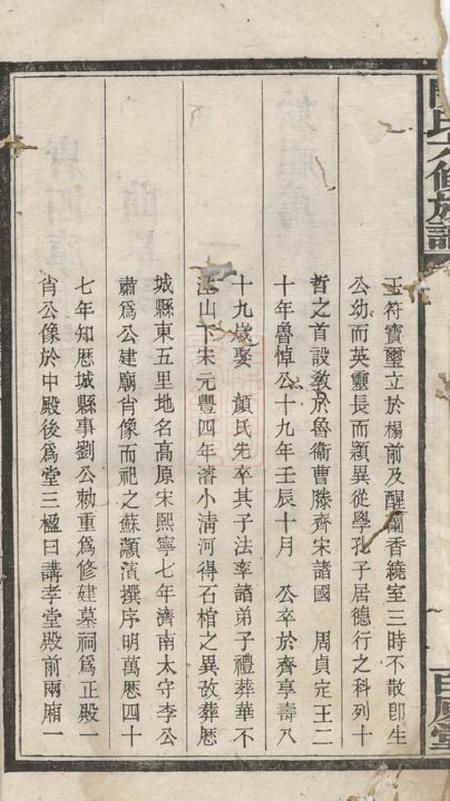 氏六修族譜
玉符寶璽立於榻前及醒蘭香繞室三時不散卽生
公幼而英靈長而穎異從學孔子居德行之科列十
哲之首設敎於魯衞曹滕齊宋諸國　周貞定王二
十年魯悼公十九年壬辰十月　公卒於齊享壽八
十九歲娶　顏氏先卒其子法率諸弟子禮葬華不
注山下宋元豐四年濬小淸河得石棺之異故葬歷
城縣東五里地名高原宋熙寧七年濟南太守李公
肅爲公建廟肖像而祀之蘇潁濱撰序明萬歷四十
七年知歷城縣事劉公勑重爲修建墓祠爲正殿一
肖公像於中殿後爲堂三楹曰講孝堂殿前兩廂一
堂